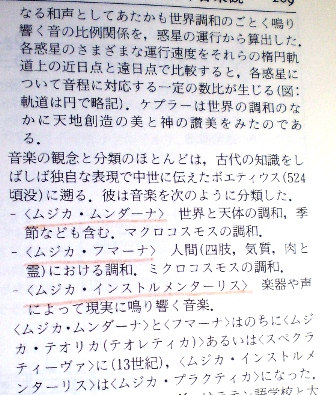 209
なる和声としてあたかも世界調和のごとく鳴り
響く音の比例関係を，惑星の運行から算出した．
各惑星のさまざまな運行速度をそれらの楕円軌
道上の近日点と遠日点で比較すると，各惑星に
ついて音程に対応する一定の数比が生じる(図：
軌道は円で略記)．ケプラーは世界の調和のな
かに天地創造の美と神の讃美をみたのであ
る．
音楽の観念と分類のほとんどは，古代の知識をし
ばしば独自な表現で中世に伝えたボエティウス(524
頃没)に遡る．彼は音楽を次のように分類した．
-〈ムジカ・ムンダーナ〉 世界と天体の調和，季
節なども含む．マクロコスモスの調和．
-〈ムジカ・フマーナ〉 人間(四肢，気質，肉と
霊)における調和．ミクロコスモスの調和．
-〈ムジカ・インストルメンターリス〉 楽器や声
によって現実に鳴り響く音楽．
〈ムジカ・ムンダーナ〉と〈フマーナ〉はのちに〈ムジ
カ・テオリカ(テオレティカ)〉あるいは〈スペクラ
ティーヴァ〉に(13世紀)，〈ムジカ・インストルメ
ンターリス〉は〈ムジカ・プラクティカ〉になった．
語学校と大